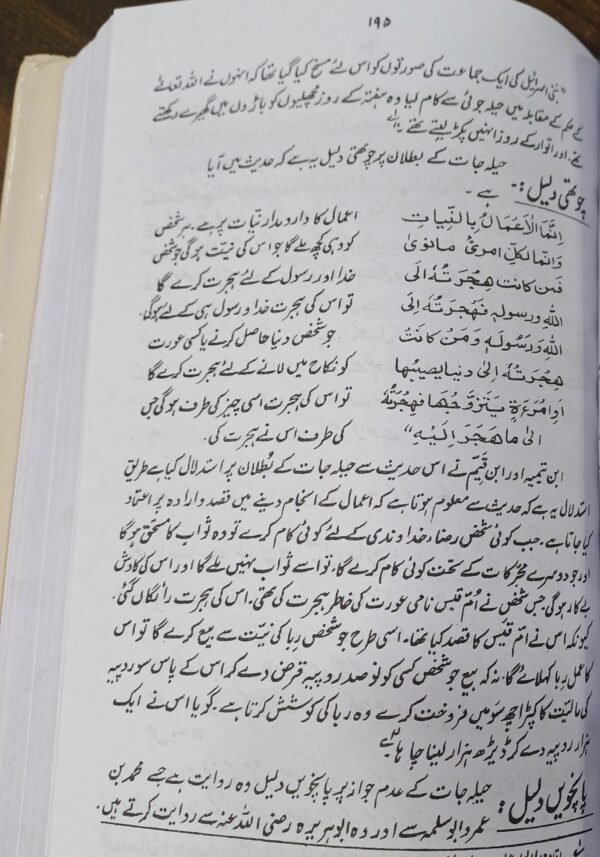 ۱۹۵
"بنی اسرائیل کی ایک جماعت کی صورتوں کو اس لئے مسخ کیا گیا تھا کہ انہوں نے اللہ تعالٰے
کے حکم کے مقابلہ میں حیلہ جوئی سے کام لیا وہ ہفتہ کے روز مچھلیوں کو باڑوں میں گھیرے رکھتے
تھے۔ اور اتوار کے روز انہیں پکڑ لیتے تھے"
چوتھی دلیل:۔ حیلہ جات کے بطلان پر چوتھی دلیل یہ ہے کہ حدیث میں آیا
ہے ۔
اِنَّمَا الْاَعْمَالُ بِالنِّیاتِ اعمال کا دار و مدار نیّات پر ہے۔ ہر شخص
وَاِنَّما لکلِّ امرئٍ مانویٰ کو وہی کچھ ملے گا جو اس کی نیت ہو گی جو شخص
فَمَن کانت ھِجْرَتُہٗ اِلَی خدا اور رسول کے لئے ہجرت کرے گا
اللہِ ورسولہٖ فَھِجْرَتُہٗ اِلیَ تو اس کی ہجرت خدا و رسول ہی کے لئے ہو گی۔
اللہِ وَرَسُولَہٖ وَمَنْ کَانَتْ جو شخص دنیا حاصل کرنے یا کسی عورت
ھِجْرَتُہٗ اِلیٰ دنیا یصیبُھا کو نکاح میں لانے کے لئے ہجرت کرے گا
اَوِامْرَءَۃٍ یَتَزَوَّجُھَا فھِجْرَتُہٗ تو اس کی ہجرت اسی چیز کی طرف ہو گی جس
الیٰ ما ھَجَرَ اِلَیْہِ" کی طرف اس نے ہجرت کی۔
ابن تیمیہ اور ابن قیّم نے اس حدیث سے حیلہ جات کے بُطلان پر استدلال کیا ہے طریق
استدلال یہ ہے کہ حدیث سے معلوم ہوتا ہے کہ اعمال کے انجام دینے میں قصد و ارادہ پر اعتماد
کیا جاتا ہے۔ جب کوئی شخص رضاء خداوندی کے لئے کوئی کام کرے تو وہ ثواب کا مستحق ہو گا
اور جو دوسرے محرّکات کے تحت کوئی کام کرے گا، تو اسے ثواب نہیں ملے گا اور اس کی کاوش
بے کار ہو گی جس شخص نے اُمّ قیس نامی عورت کی خاطر ہجرت کی تھی۔ اس کی ہجرت رائگاں گئی۔
کیونکہ اس نے امّ قیس کا قصد کیا تھا۔ اسی طرح جو شخص ربا کی نیّت سے بیع کرے گا تو اس
کا عمل ربا کہلائے گا۔ نہ کہ بیع جو شخص کسی کو نو صد روپیہ قرض دے کر اس کے پاس سو روپیہ
کی مالیّت کا کپڑا چھ سو میں فروخت کرے وہ ربا کی کوشش کرتا ہے۔ گویا اس نے ایک
ہزار روپیہ دے کر ڈیڑھ ہزار لینا چاہا
پانچویں دلیل: حیلہ جات کے عدم جواز پر پانچویں دلیل وہ روایت ہے جسے محمد بن
عمرو ابو سلمہ سے اور وہ ابو ہریرہ رضی اللہ عنہ سے روایت کرتے ہیں۔